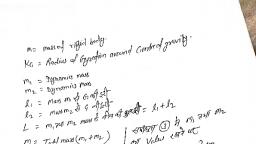 m = mass of rigid body.
KG = Radius of Gyration around Center of gravity.
m1 = Dynamic mass
m2 = Dynamic mass
l1 = Mass m1 से G की दूरी
l2 = mass m2 से G की दूरी
L = m1 और m2 mass के बीच की दूरी = l1 + l2
m = Total mass (m1 + m2)
समीकरण ③ में m1 और m2
का value रखने पर